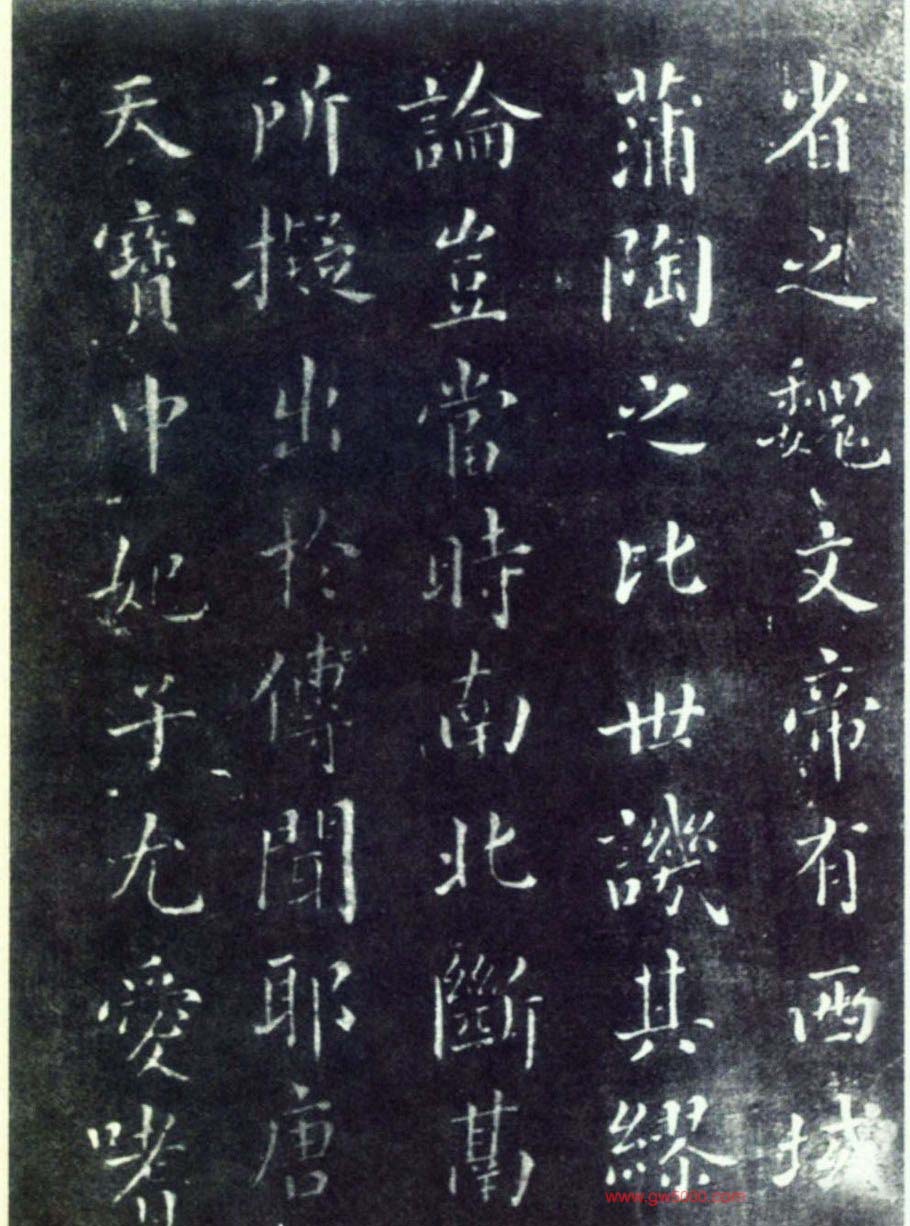 省之魏文帝有西域
蒲陶之比世譏其繆
論豈當時南北斷萬
所擬出於傳聞耶唐
天寶中妃子尤愛嗜
www.gw5000.com